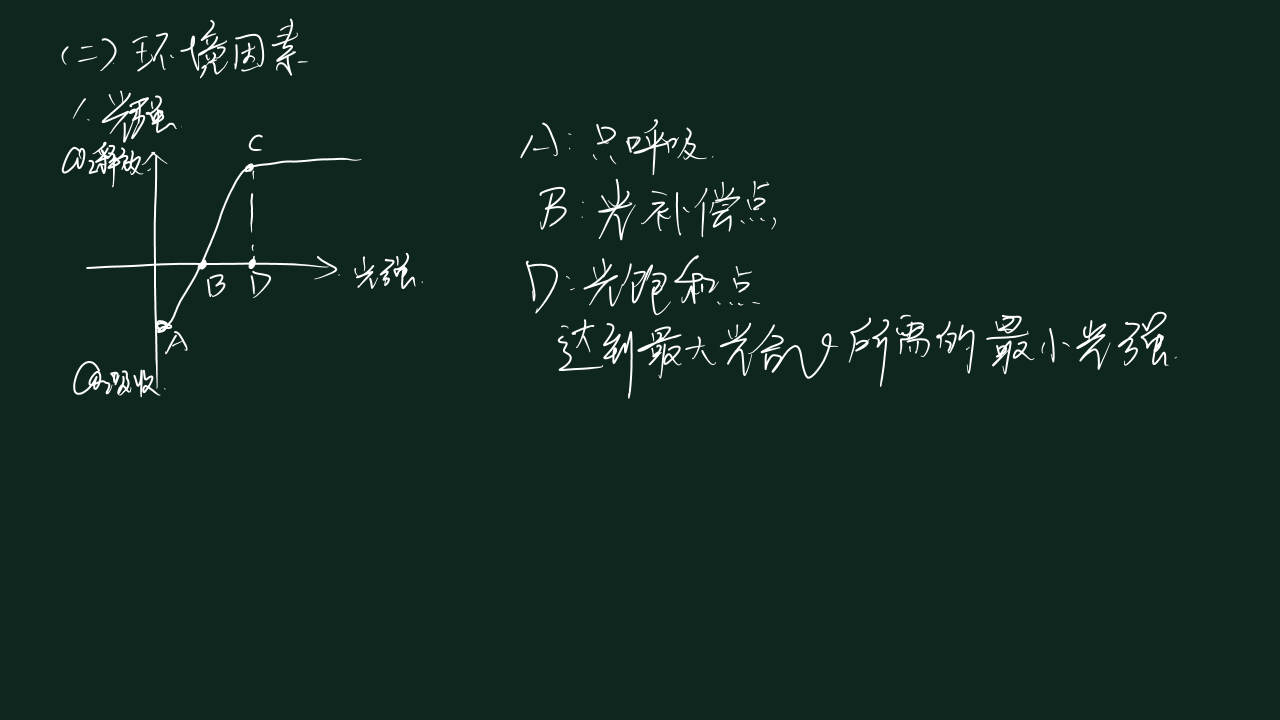 (二)环境因素
1.光强
CO₂释放
C
B
D
光强.
A
CO₂吸收
A:只呼吸.
B:光补偿点
D:光饱和点
达到最大光合v所需的最小光强.